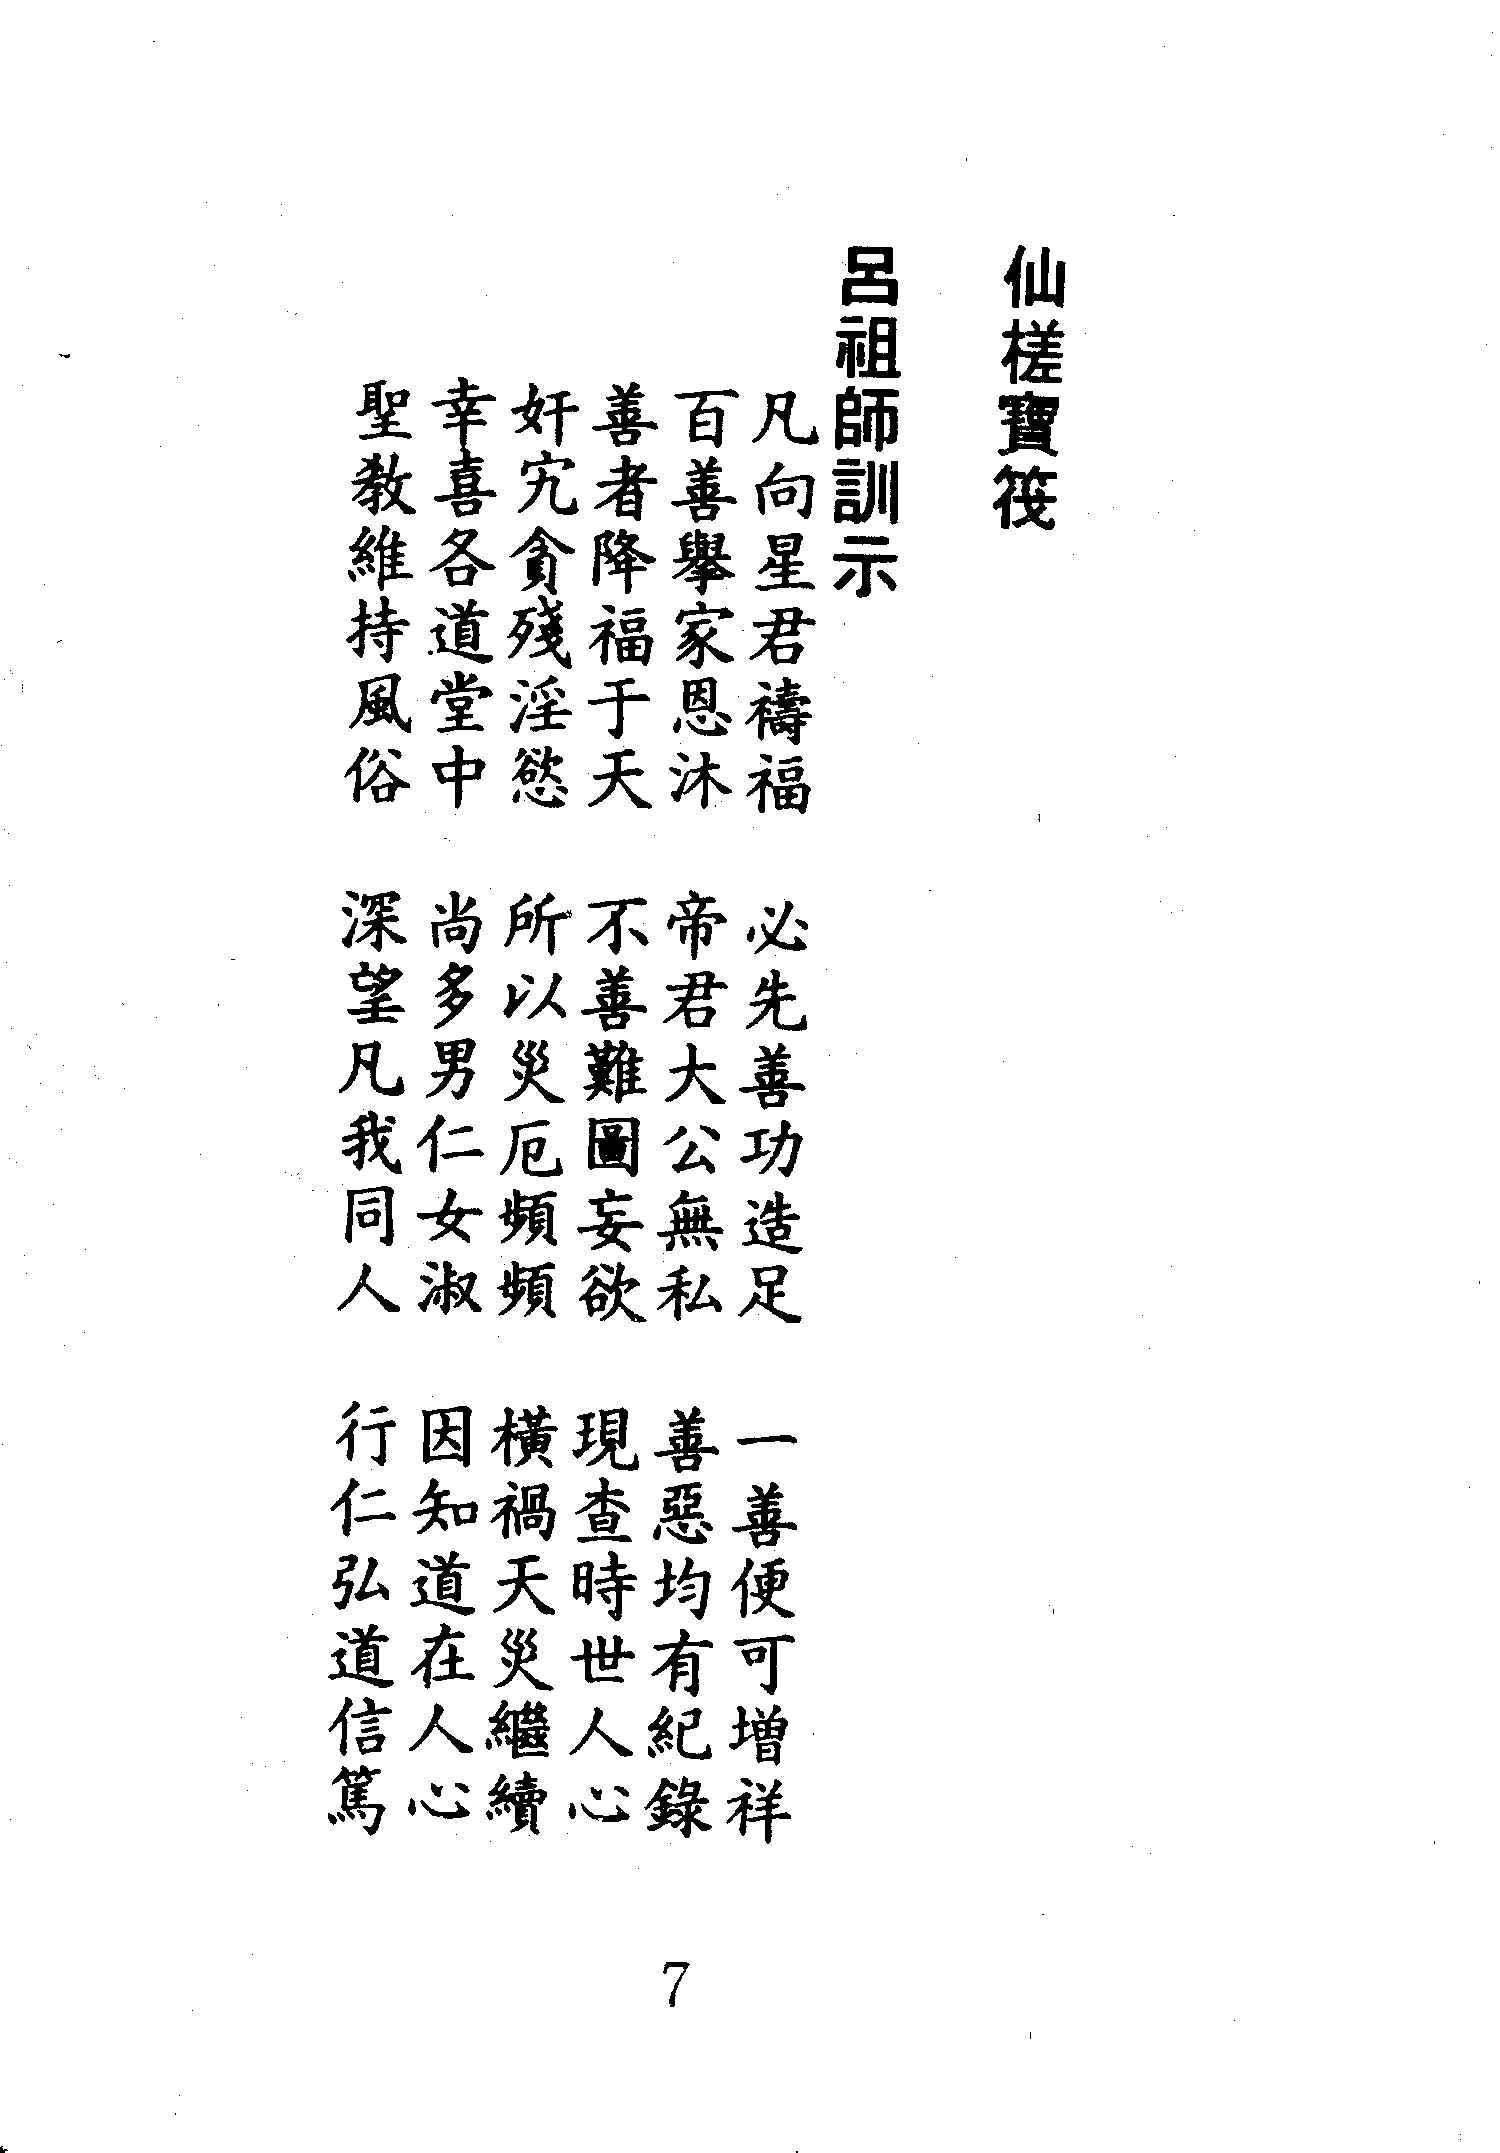 仙槎寶筏
呂祖師訓示
凡向星君禱福　必先善功造足　一善便可增祥
百善舉家恩沐　帝君大公無私　善惡均有紀錄
善者降福于天　不善難圖妄欲　現查時世人心
奸宄貪殘淫慾　所以災厄頻頻　橫禍天災繼續
幸喜各道堂中　尚多男仁女淑　因知道在人心
聖教維持風俗　深望凡我同人　行仁弘道信篤
7